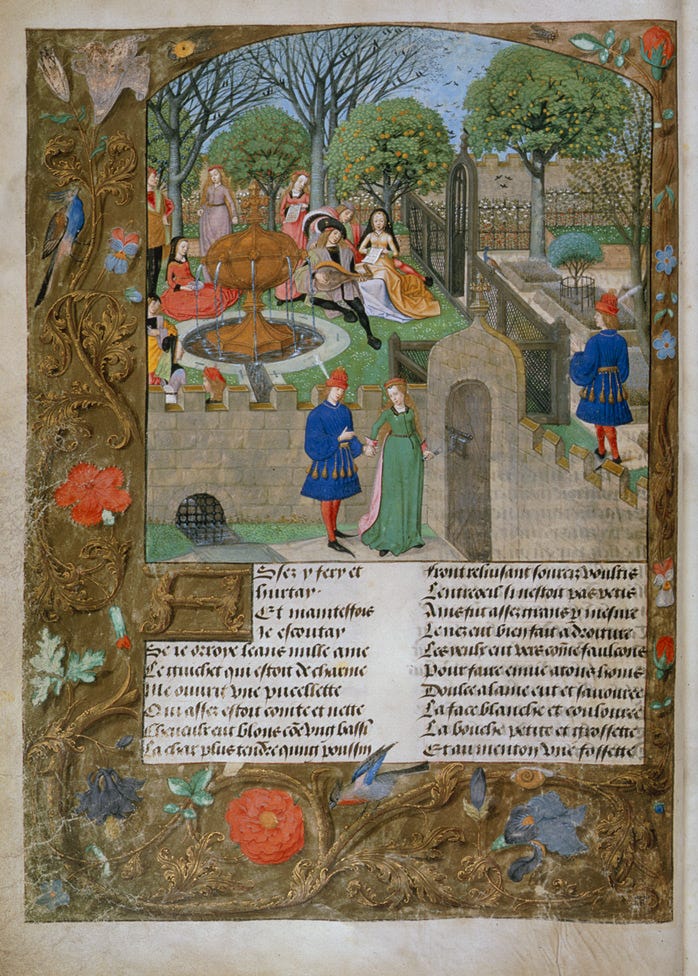 Assez y fery et
hurtay
Et maintesfois
Ie escoutay
Se ie orroye leans nulle ame
Le guichet qui estoit de charme
Me ouurit vne pucellette
Qui assez estoit comte et nette
Cheueulx eut blons cõe vng bassĩ
La char plus tendre qung poussin
Front reluisant sourcez voultis
Lentreoeil si nestoit pas petis
Ains fut assez grans p mesure
Le nez eut bien fait a droiture
Les yeulx eut vers cõme faulcons
Pour faire enuie a tous homs
Doulce alaine eut et sauouree
La face blanche et coulouree
La bouche petite et grossette
Et au menton vne fossette